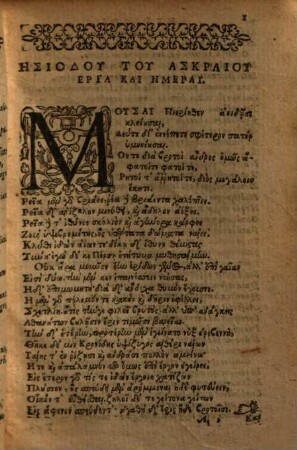 1
ΗΣΙΟΔΟΥ ΤΟΥ ΑΣΚΡΑΙΟΥ
ΕΡΓΑ ΚΑΙ ΗΜΕΡΑΙ.
ΜΟΥΣΑΙ Πιερίηθεν ἀοιδῇσι
κλείουσαι,
Δεῦτε δὴ ἐννέπετε σφέτερον πατέρ'
ὑμνείουσαι.
Ὅντε διὰ βροτοὶ ἄνδρες ὁμῶς ἄ-
φατοί τε φατοί τε,
Ῥητοί τ' ἄῤῥητοί τε, διὸς μεγάλοιο
ἕκητι.
Ῥεῖα μὲν γὰρ βριάει, ῥεῖα δὲ βριάοντα χαλέπτει,
Ῥεῖα δ' ἀρίζηλον μινύθει, καὶ ἄδηλον ἀέξει,
Ῥεῖα δέ τ' ἰθύνει σκολιὸν, καὶ ἀγήνορα κάρφει
Ζεὺς ὑψιβρεμέτης, ὃς ὑπέρτατα δώματα ναίει.
Κλῦθι ἰδὼν ἀΐων τε, δίκῃ δ' ἴθυνε θέμιστας
Τύνη· ἐγὼ δέ κε Πέρσῃ ἐτήτυμα μυθησαίμην.
Οὐκ ἄρα μοῦνον ἔην ἐρίδων γένος, ἀλλ' ἐπὶ γαῖαν
Εἰσὶ δύω. τὴν μέν κεν ἐπαινήσειε νοήσας,
Ἡ δ' ἐπιμωμητή· διὰ δ' ἄνδιχα θυμὸν ἔχουσιν.
Ἡ μὲν γὰρ πόλεμόν τε κακὸν καὶ δῆριν ὀφέλλει,
Σχετλίη. οὔτις τήνγε φιλεῖ βροτὸς, ἀλλ' ὑπ' ἀνάγκης
Ἀθανάτων βουλῇσιν ἔριν τιμῶσι βαρεῖαν.
Τὴν δ' ἑτέρην, προτέρην μὲν ἐγείνατο νὺξ ἐρεβεννὴ,
Θῆκε δέ μιν Κρονίδης ὑψίζυγος αἰθέρι ναίων
Γαίης τ' ἐν ῥίζῃσι καὶ ἀνδράσι πολλὸν ἀμείνω
Ἥτε καὶ ἀπάλαμνόν περ ὅμως ἐπὶ ἔργον ἐγείρει.
Εἰς ἕτερον γάρ τίς τε ἰδὼν ἔργοιο χατίζων
Πλούσιον, ὃς σπεύδει μὲν ἀρόμμεναι ἠδὲ φυτεύειν,
Οἶκόν τ' εὖ θέσθαι. ζηλοῖ δέ τε γείτονα γείτων
Εἰς ἄφενον σπεύδοντ'· ἀγαθὴ δ' ἔρις ἥδε βροτοῖσι.
Καὶ